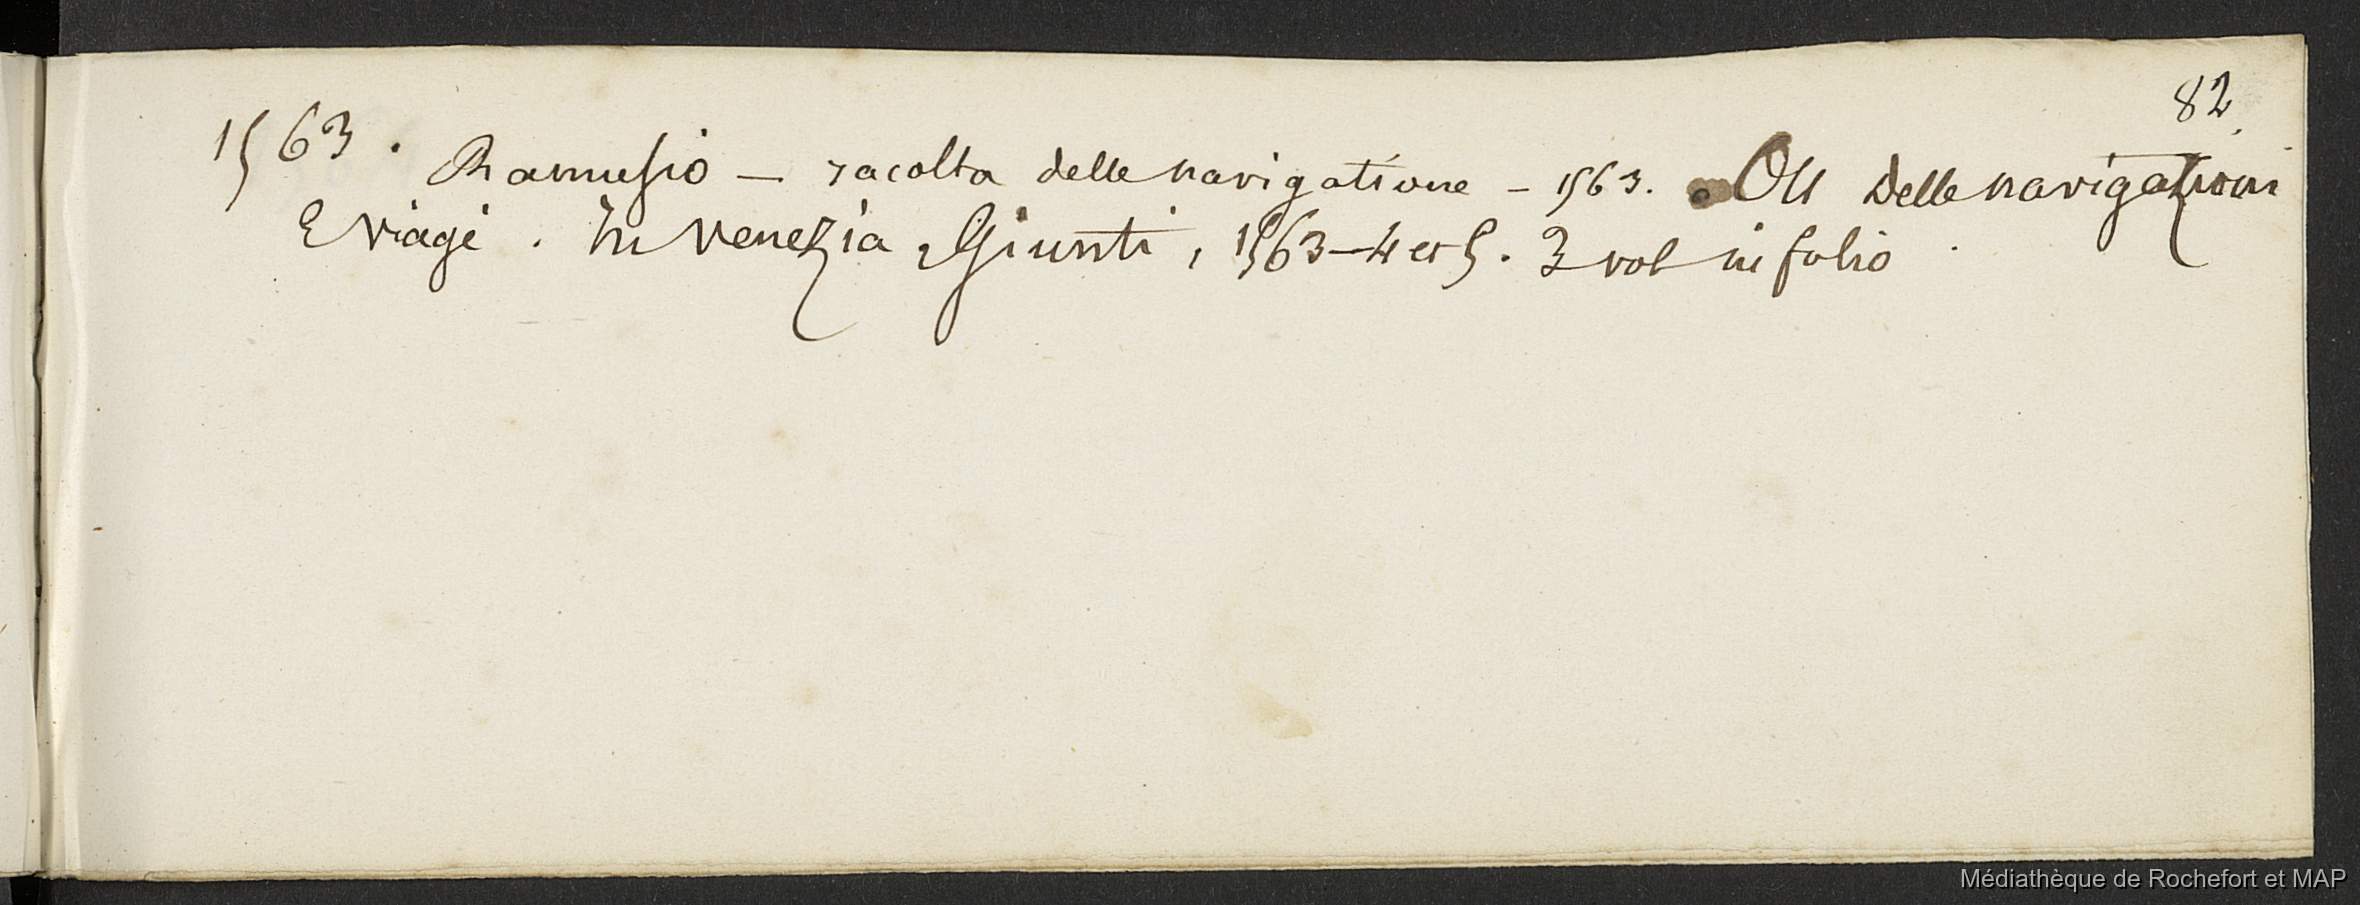 82
1563. Ramusio — racolta delle navigatione - 1563. Ou delle navigationi
E viagi. In Venezia, Giunti, 1563-4 et 5. 3 vol in folio.
Médiathèque de Rochefort et MAP